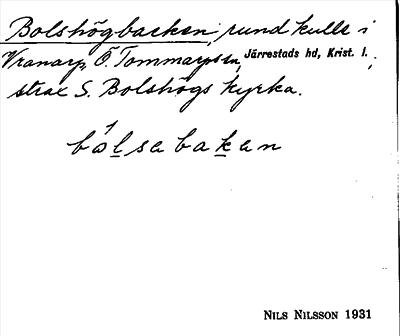 Bolshögbacken, rund kulle i
Vranarp, Ö. Tommarps sn, Järrestads hd, Krist. l.,
strax S. Bolshögs kyrka.
bólsabakan
NILS NILSSON 1931